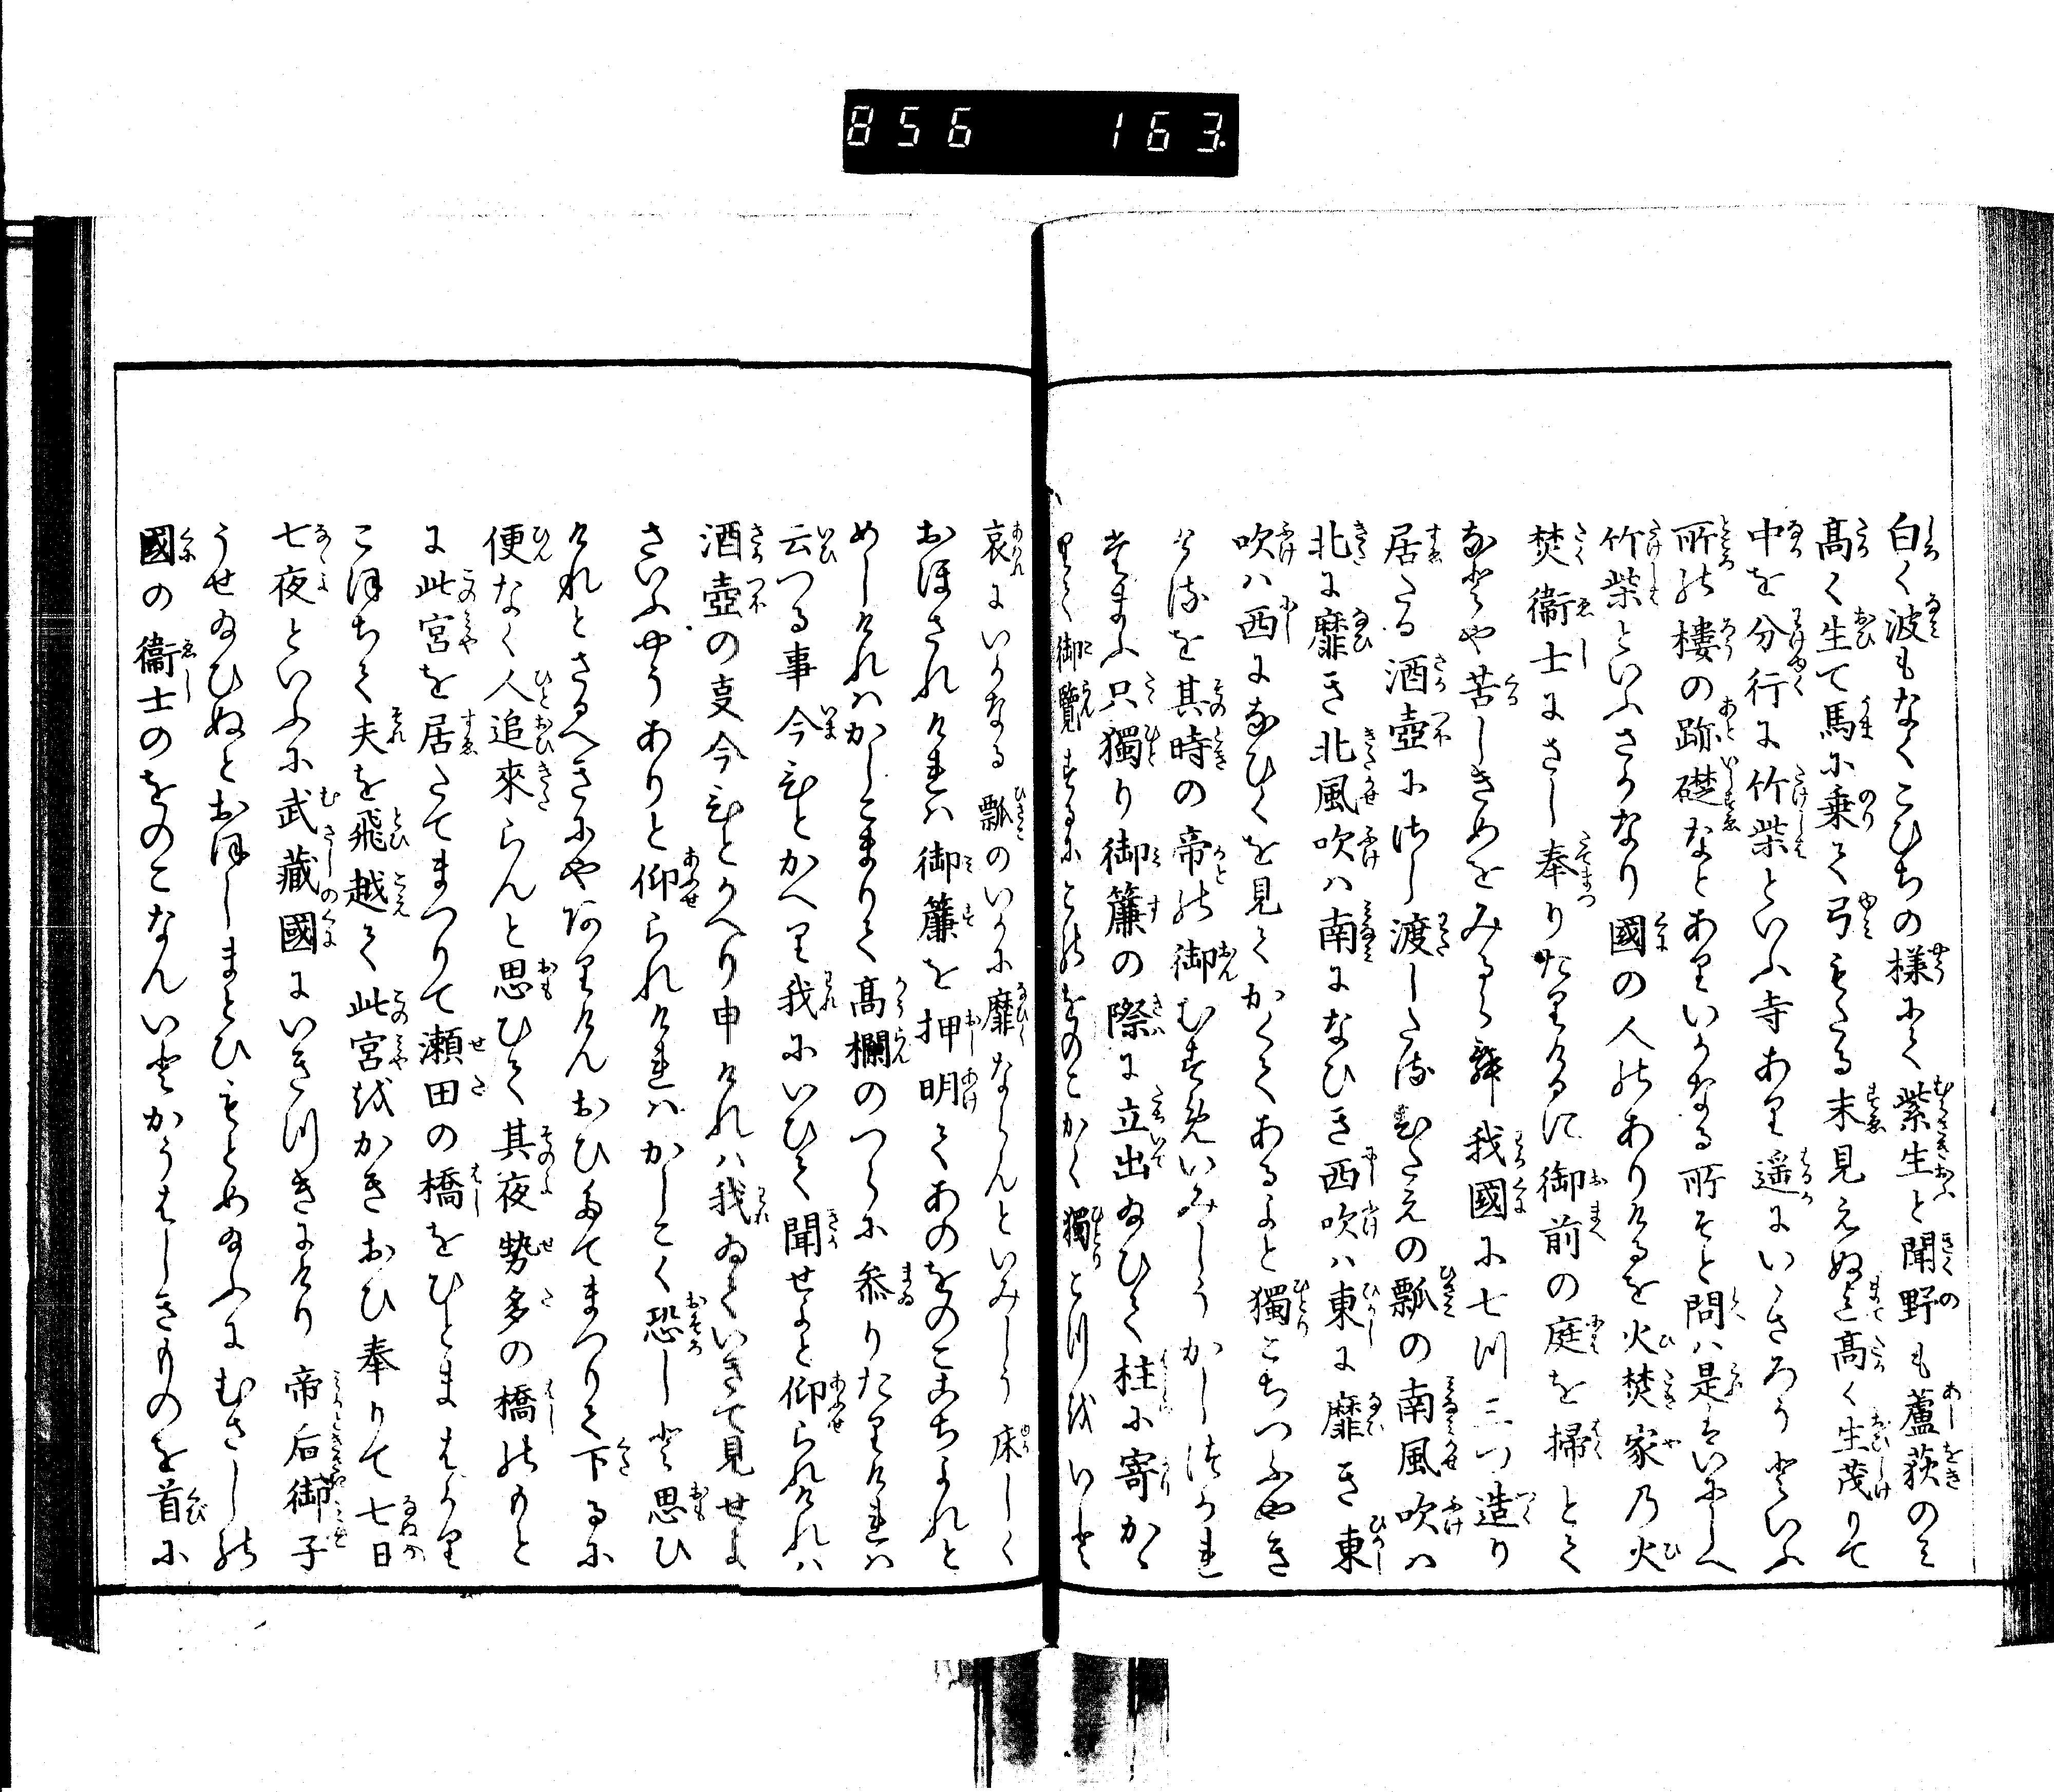 856 163
白く波もなくこひちの様にて紫生と聞野も蘆荻のみ
高く生て馬に乗て弓もたる末見えぬまて高く生茂りて
中を分行に竹柴といふ寺あり遥にいゝさろう といふ
所の楼の跡礎なとありいかなる所そと問は是はいにしへ
竹柴といふさかなり国の人のありけるを火焚家の火
焚衛士にさし奉りたりけるに御前の庭を掃とて
なとや苦しきめをみるらん我国に七つ三つ造り
居たる酒壺にさし渡したるひたえの瓢の南風吹は
北に靡き北風吹は南になひき西吹は東に靡き東
吹は西になひくを見てかくてあるよと独こちつふやき
けるを其時の帝の御むすめいみしうかしつかれ
たまふ只独り御簾の際に立出給ひて柱に寄かゝ
りて御覧するにこのをのこかく独とつをいと
哀にいかなる瓢のいかに靡ならんといみしう床しく
おほされけれは御簾を押明てあのをのこゝちよれと
めしけれはかしこまりて高欄のつらに参りたりけれは
云つる事今ひとかへり我にいひて聞せよと仰られけれは
酒壺の事今ひとかへり申けれは我ゐていきて見せよ
さいふやうありと仰られけれはかしこく恐しと思ひ
けれとさるへきにやありけんおひたてまつりて下るに
便なく人追来らんと思ひて其夜勢多の橋のもと
に此宮を居たてまつりて瀬田の橋をひとまはかり
こほちて夫を飛越て此宮をかきおひ奉りて七日
七夜といふに武蔵国にいきつきにけり 帝后御子
うせ給ひぬとおほしまとひもとめ給ふにむさしの
国の衛士のをのこなんいとかうはしきものを首に